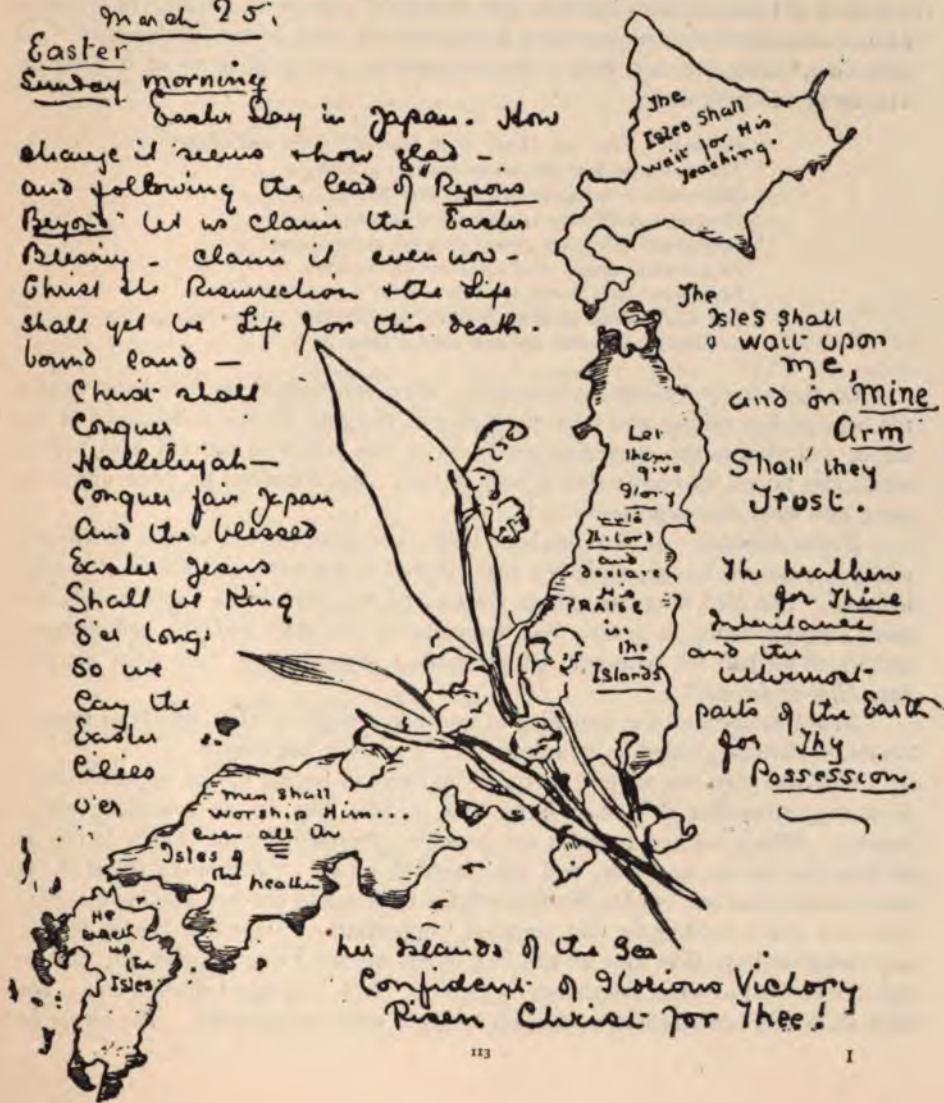 March 25.
Easter
Sunday morning
Easter Day in Japan. How
strange it seems & how glad –
and following the lead of "Regions
Beyond" let us claim the Easter
Blessing – claim it even now –
Christ the Resurrection & the Life
shall yet be Life for this death-
bound land –
Christ shall
Conquer
Hallelujah –
Conquer fair Japan
And the blessed
Easter Jesus
Shall be King
E'er long:
So we
Lay the
Easter
Lilies
O'er
her Islands of the Sea
Confident of Glorious Victory
Risen Christ for Thee!
The
Isles shall
wait for His
Teaching.
The
Isles shall
wait upon
me,
and on Mine
Arm
Shall they
Trust.
Let
them
give
glory
unto
the Lord
and
declare
His
PRAISE
in
the
Islands
The heathen
for Thine
Inheritance
and the
uttermost
parts of the Earth
for Thy
Possession.
Men shall
worship Him...
even all the
Isles of
the heathen
He
up
the
Isles
113
I